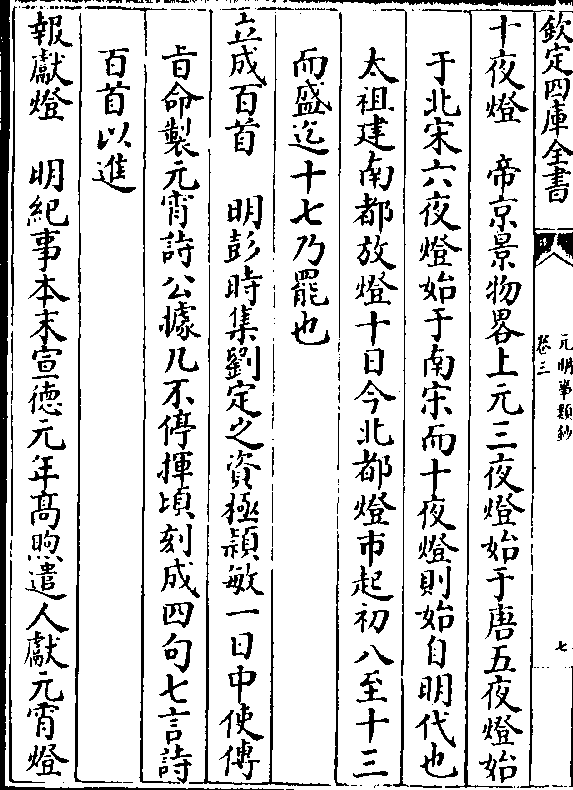 欽定四庫全書
元明事類鈔
卷三
七
十夜燈　帝京景物畧上元三夜燈始于唐五夜燈始
于北宋六夜燈始于南宋而十夜燈則始自明代也
太祖建南都放燈十日今北都燈市起初八至十三
而盛迄十七乃罷也
立成百首　明彭時集劉定之資極頴敏一日中使傅
㫖命製元宵詩公據几不停揮頃刻成四句七言詩
百首以進
報獻燈　明紀事本末宣徳元年髙煦遣人獻元宵燈